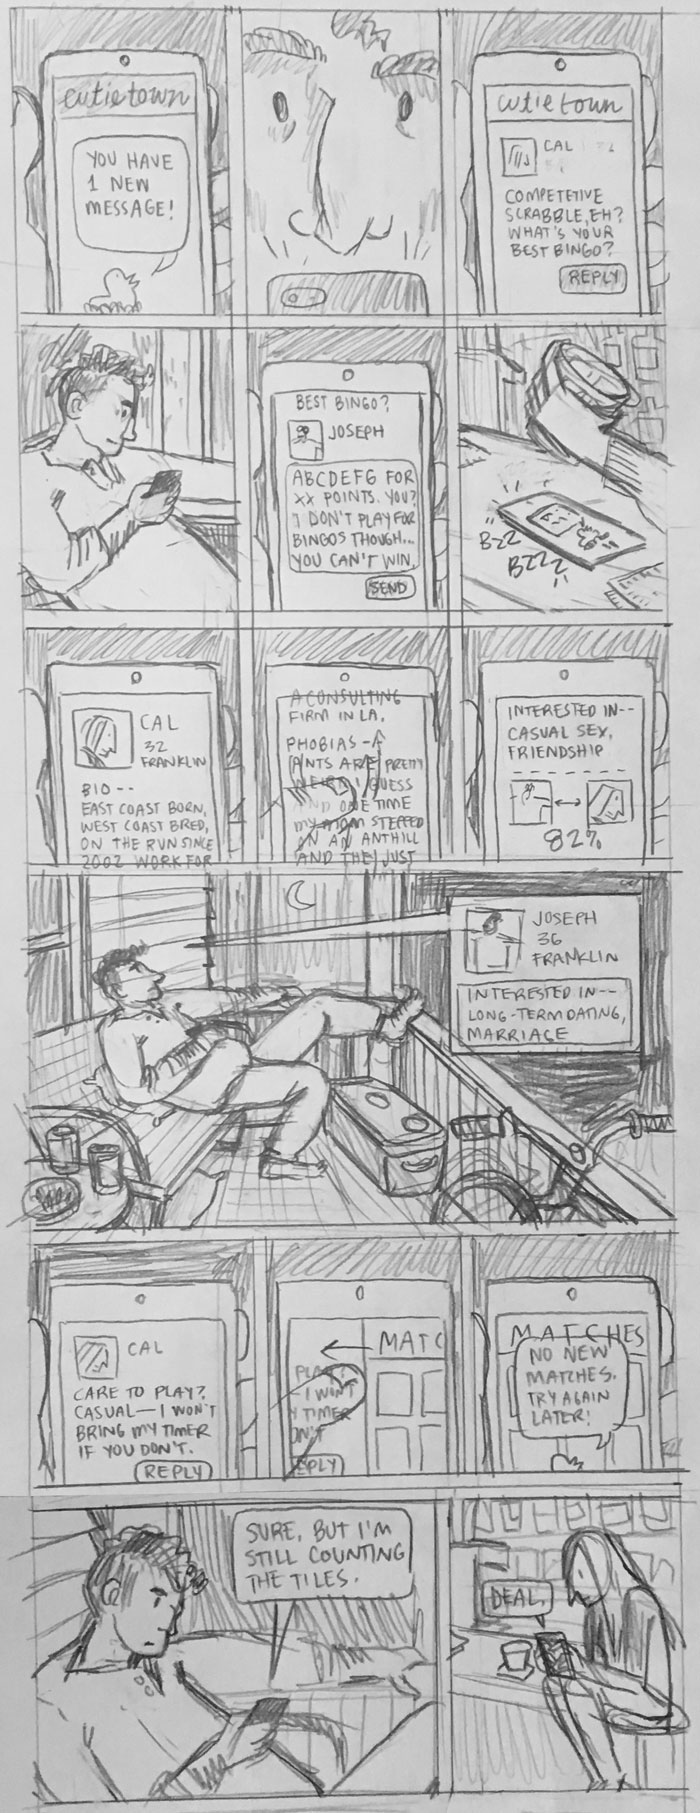 cutietown
YOU HAVE
1 NEW
MESSAGE!
cutietown
CAL
COMPETETIVE
SCRABBLE, EH?
WHAT'S YOUR
BEST BINGO?
REPLY
BEST BINGO?
JOSEPH
ABCDEFG FOR
XX POINTS. YOU?
I DON'T PLAY FOR
BINGOS THOUGH...
YOU CAN'T WIN.
SEND
BZZ
BZZZ
CAL
32
FRANKLIN
BIO--
EAST COAST BORN,
WEST COAST BRED,
ON THE RUN SINCE
2002 WORK FOR
A CONSULTING
FIRM IN LA.
PHOBIAS--
ANTS ARE PRETTY
WEIRD I GUESS
AND ONE TIME
MY MOM STEPPED
ON AN ANTHILL
AND THEY JUST
INTERESTED IN--
CASUAL SEX,
FRIENDSHIP
82%
JOSEPH
36
FRANKLIN
INTERESTED IN--
LONG-TERM DATING,
MARRIAGE
CAL
CARE TO PLAY?
CASUAL—I WON'T
BRING MY TIMER
IF YOU DON'T.
REPLY
MATC
PLAY?
—I WON'T
Y TIMER
ON'T
EPLY
MATCHES
NO NEW
MATCHES.
TRY AGAIN
LATER!
SURE, BUT I'M
STILL COUNTING
THE TILES.
DEAL.